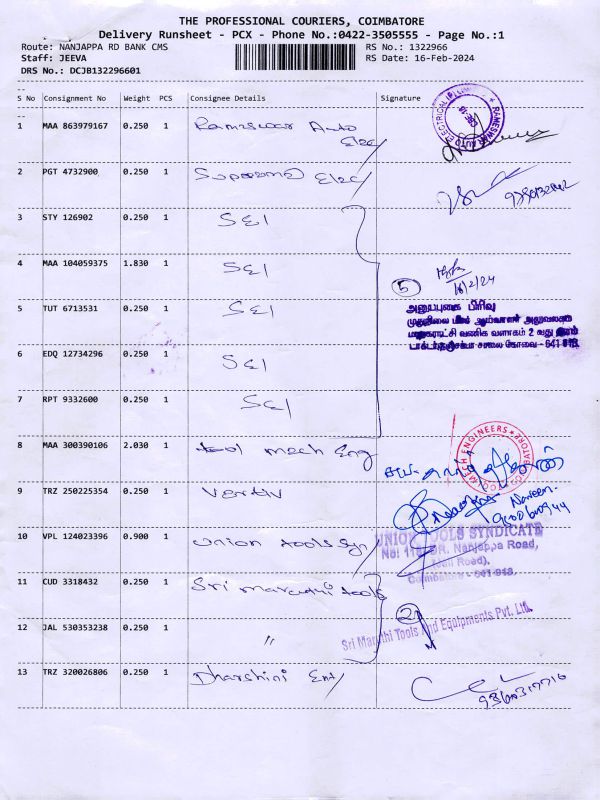 THE PROFESSIONAL COURIERS, COIMBATORE
Delivery Runsheet - PCX - Phone No.:0422-3505555 - Page No.:1
Route: NANJAPPA RD BANK CMS
RS No.: 1322966
Staff: JEEVA
RS Date: 16-Feb-2024
DRS No.: DCJB132296601
S No Consignment No Weight PCS Consignee Details Signature
1 MAA 863979167 0.250 1 Rameswar Auto Elec/
RAMESWAR AUTO ELECTRICAL
2 PGT 4732900 0.250 1 Supreme Elec/
3 STY 126902 0.250 1 SEI
4 MAA 104059375 1.830 1 SEI
5 16/2/24
5 TUT 6713531 0.250 1 SEI
அனுப்புகை பிரிவு
6 EDQ 12734296 0.250 1 SEI
7 RPT 9332600 0.250 1 SEI
8 MAA 300390106 2.030 1 tool mech Eng
MECH ENGINEERS
9 TRZ 250225354 0.250 1 Vertiv
Naveen
10 VPL 124023396 0.900 1 Union tools Syn/
UNION TOOLS SYNDICATE
DR. Nanjappa Road,
Coimbatore
11 CUD 3318432 0.250 1 Sri Maruthi tools
2
12 JAL 530353238 0.250 1 "
Sri Maruthi Tools And Equipments Pvt. Ltd.
13 TRZ 320026806 0.250 1 Dharshini Ent/